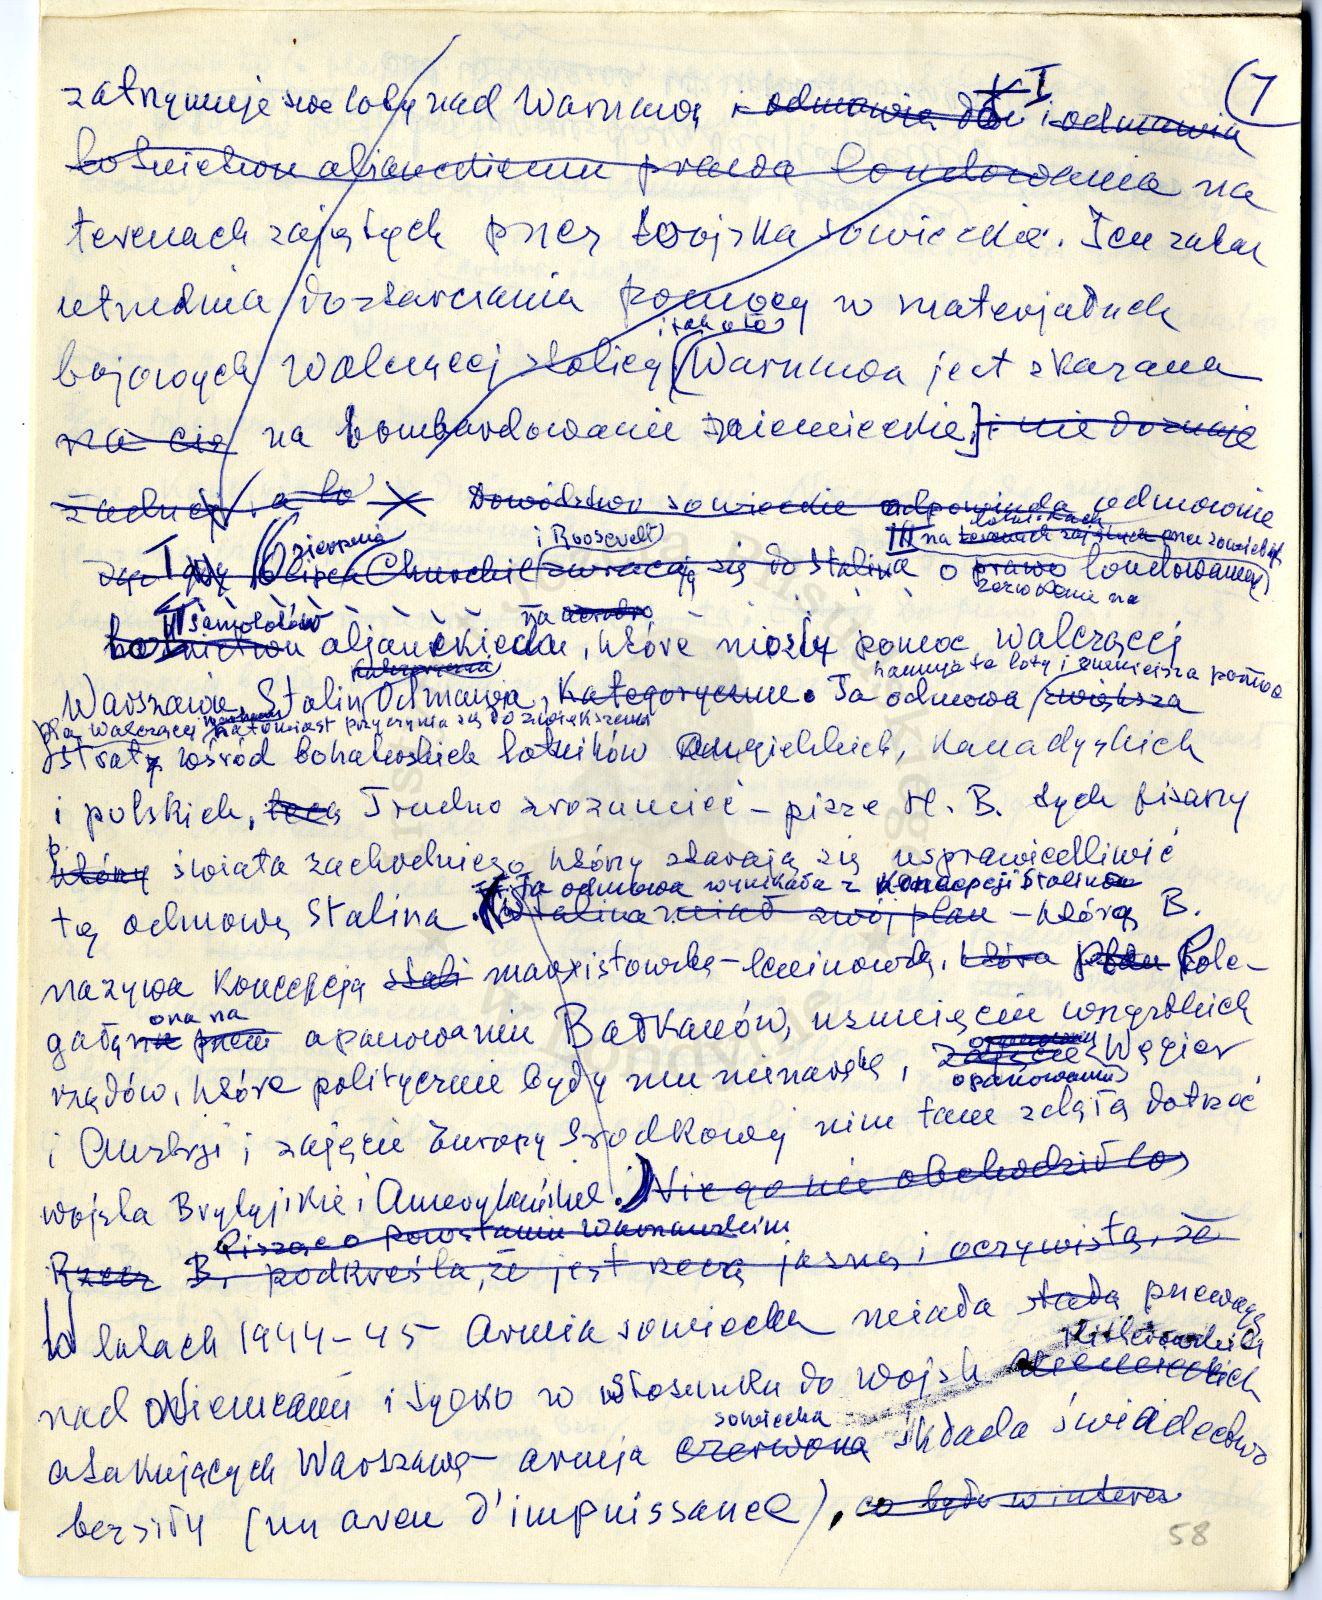 (7
zatrzymuje swe loty nad Warszawą i odmawia i odmawia
lotnictwu aljanckiemu prawa londowania na
terenach zajętych przez wojska sowieckie. Ten zakaz
utrudnia dostarczania pomocy w materjałach
i tak oto
bojowych walczącej stolicy (Warszawa jest skazana
na cię na bombardowanie niemieckie] i nie doznaje
żadnej a to Dowództwo sowieckie odpowiada odmownie
I sierpnia i Roosevelt III na lotniskach
Gdy Churchil zwracają się do Stalina o prawo londowania
zezwolenie na
II samolotów na
lotnictwu aljanckiedu, które niosły pomoc walczącej
kategoryczna hamuje te loty i zmniejsza pomoc
Warszawie Stalin Odmawia, kategorycznie. Ta odmowa zwiększa
dla walczącej natomiast przyczynia się do zwiększenia
strat wśród bohaterskich lotników angielskich, kanadyjskich
i polskich, Trudno zrozumieć – pisze H. B. tych pisarzy
którzy świata zachodniego, którzy starają się usprawiedliwić
Ta odmowa wynikała z koncepcji Stalina
tą odmowę Stalina. Stalina miał swój plan – którą B.
nazywa koncepcją stali marxistowską–leninowską. która plan Pole-
ona na
gała opanowaniu Bałkanów, usunięciu wszystkich
rządów, które politycznie były mu nienawistne, zajęcie Węgier
opanowaniu
i Austrji i zajęcie Europy Srodkowej nim tam zdążą dotrzeć
wojska Brytyjskie i Amerykańskie. Niego nie obchodziło
Pisząc o powstaniu Warszawskim
Rzecz B. podkreśla, że jest rzeczą jasną i oczywistą, że
W latach 1944–45 Armia sowiecka miała stałą przewagę
Hitlerowskich
nad Niemcami i tylko w stosunku do wojsk niemieckich
sowiecka
atakujących Warszawę – armja czerwona składa świadectwo
bezsiły (un aveu d'impuissance), co było w interes
58